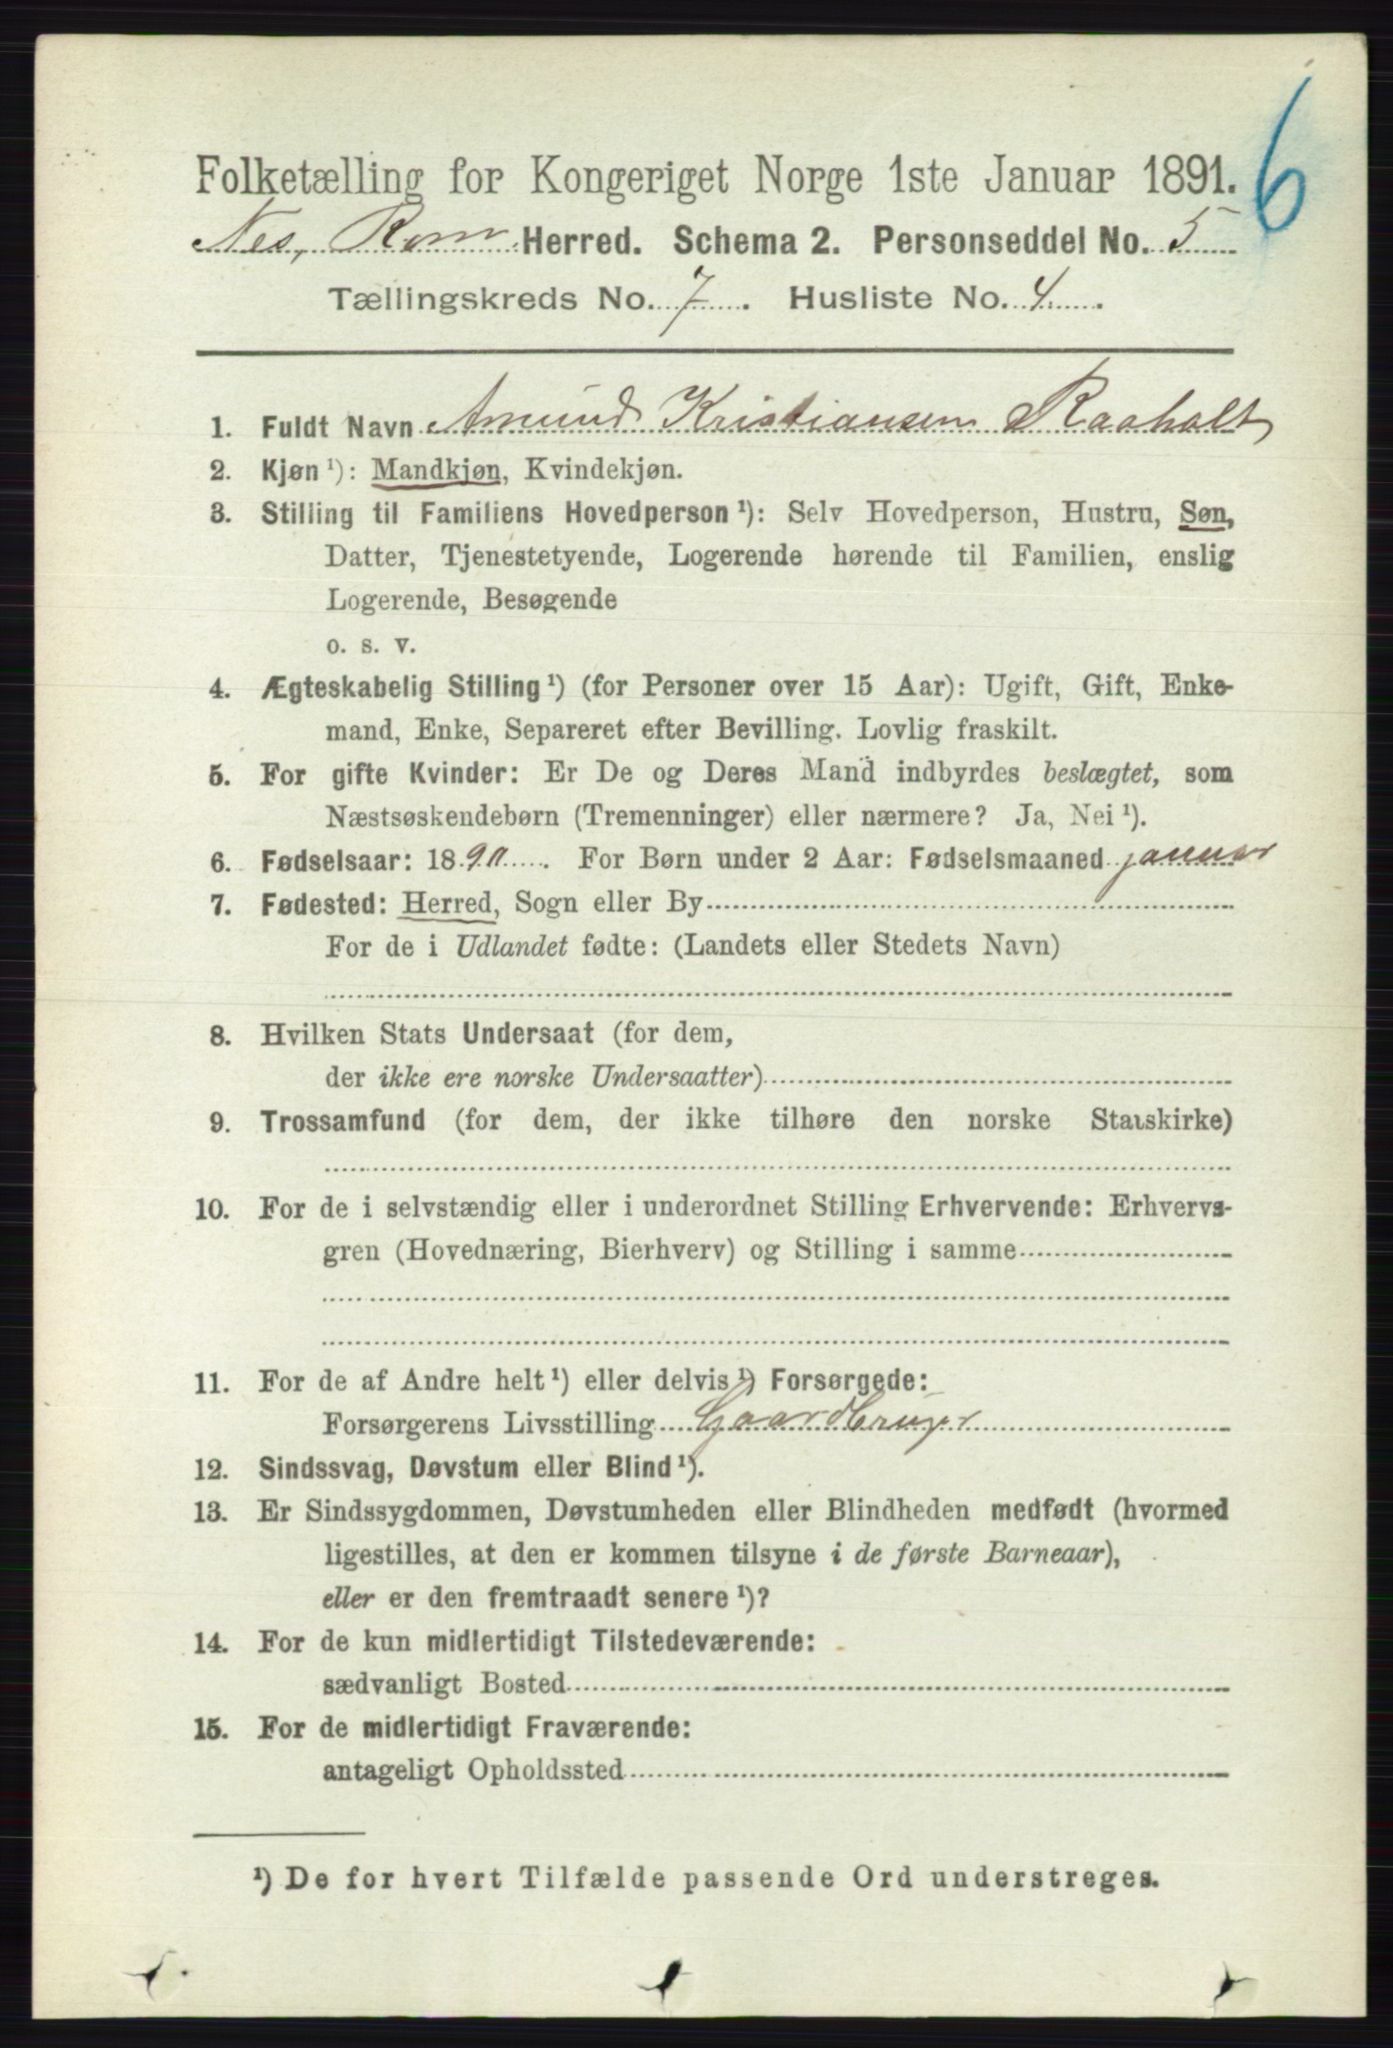 6
Folketælling for Kongeriget Norge 1ste Januar 1891.
Nes, Rom. Herred. Schema 2. Personseddel No. 5
Tællingskreds No. 7. Husliste No. 4.
1. Fuldt Navn Amund Kristiansen Raaholt
2. Kjøn ¹): Mandkjøn, Kvindekjøn.
3. Stilling til Familiens Hovedperson ¹): Selv Hovedperson, Hustru, Søn,
Datter, Tjenestetyende, Logerende hørende til Familien, enslig
Logerende, Besøgende
o. s. v.
4. Ægteskabelig Stilling ¹) (for Personer over 15 Aar): Ugift, Gift, Enke-
mand, Enke, Separeret efter Bevilling. Lovlig fraskilt.
5. For gifte Kvinder: Er De og Deres Mand indbyrdes beslægtet, som
Næstsøskendebørn (Tremenninger) eller nærmere? Ja, Nei ¹).
6. Fødselsaar: 1890. For Børn under 2 Aar: Fødselsmaaned januar
7. Fødested: Herred, Sogn eller By
For de i Udlandet fødte: (Landets eller Stedets Navn)
8. Hvilken Stats Undersaat (for dem,
der ikke ere norske Undersaatter)
9. Trossamfund (for dem, der ikke tilhøre den norske Statskirke)
10. For de i selvstændig eller i underordnet Stilling Erhvervende: Erhvervs-
gren (Hovednæring, Bierhverv) og Stilling i samme
11. For de af Andre helt ¹) eller delvis ¹) Forsørgede:
Forsørgerens Livsstilling Gaardbruger
12. Sindssvag, Døvstum eller Blind ¹).
13. Er Sindssygdommen, Døvstumheden eller Blindheden medfødt (hvormed
ligestilles, at den er kommen tilsyne i de første Barneaar),
eller er den fremtraadt senere ¹)?
14. For de kun midlertidigt Tilstedeværende:
sædvanligt Bosted
15. For de midlertidigt Fraværende:
antageligt Opholdssted
¹) De for hvert Tilfælde passende Ord understreges.